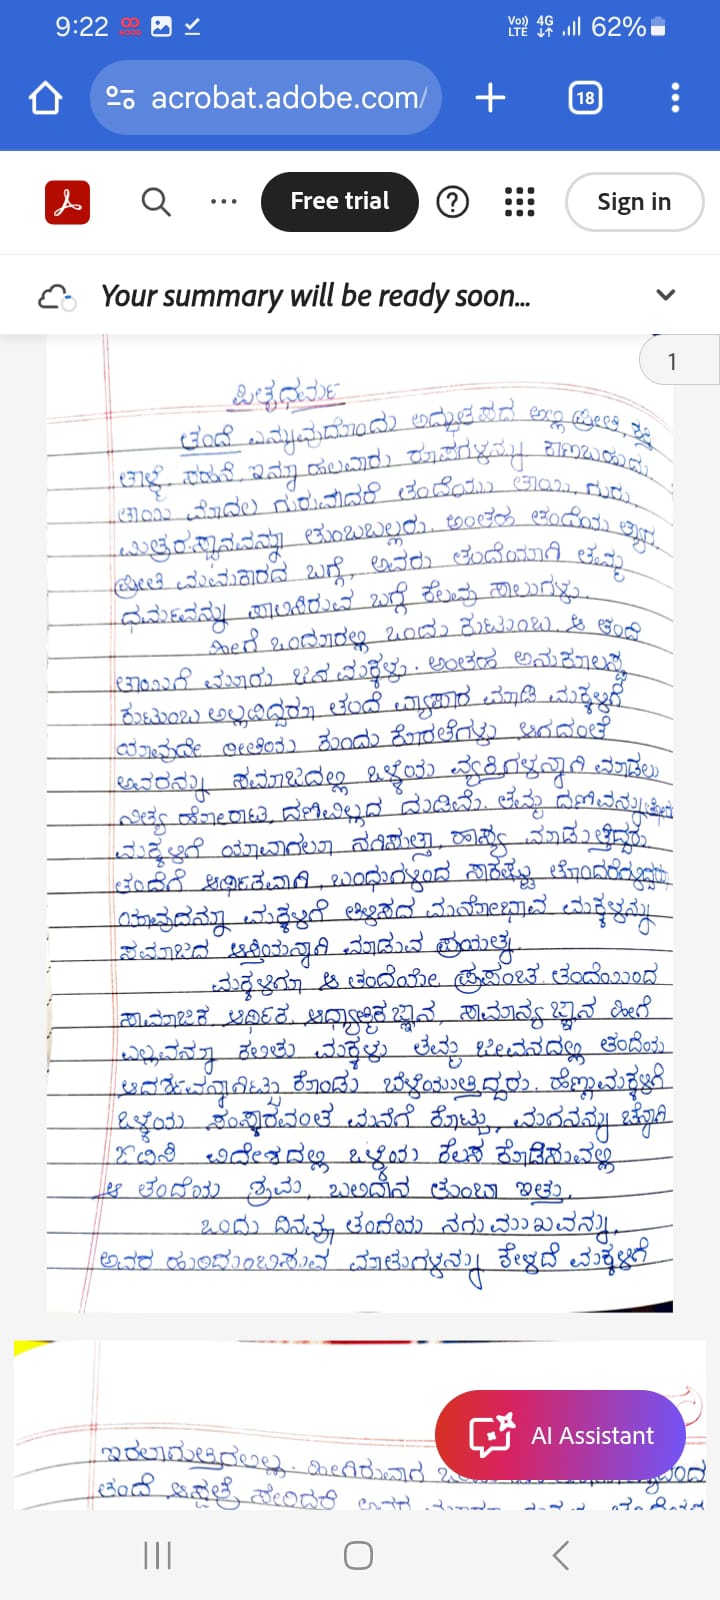 9:22
Vo)) LTE 4G 62%
acrobat.adobe.com/
18
Free trial
Sign in
Your summary will be ready soon...
1
ಪಿತೃಧರ್ಮ
ತಂದೆ ಎನ್ನುವುದೊಂದು ಅದ್ಭುತಪದ ಅಲ್ಲಿ ಪ್ರೀತಿ,
ತಾಳ್ಮೆ, ಸಹನೆ, ಇನ್ನೂ ಹಲವಾರು ರೂಪಗಳನ್ನು ಕಾಣಬಹುದು.
ತಾಯಿ ಮೊದಲ ಗುರುವಾದರೆ ತಂದೆಯು ತಾಯಿ, ಗುರು,
ಮಿತ್ರರ ಸ್ಥಾನವನ್ನು ತುಂಬಬಲ್ಲರು. ಅಂತಹ ತಂದೆಯ ತ್ಯಾಗ,
ಪ್ರೀತಿ ಮಮಕಾರದ ಬಗ್ಗೆ, ಅವರು ತಂದೆಯಾಗಿ ತಮ್ಮ
ಧರ್ಮವನ್ನು ಪಾಲಿಸಿರುವ ಬಗ್ಗೆ ಕೆಲವು ಸಾಲುಗಳು.
ಹೀಗೆ ಒಂದೂರಲ್ಲಿ ಒಂದು ಕುಟುಂಬ. ಆ ತಂದೆ
ತಾಯಿಗೆ ಮೂರು ಜನ ಮಕ್ಕಳು. ಅಂತಹ ಅನುಕೂಲಸ್ಥ
ಕುಟುಂಬ ಅಲ್ಲದಿದ್ದರೂ ತಂದೆ ವ್ಯಾಪಾರ ಮಾಡಿ ಮಕ್ಕಳಿಗೆ
ಯಾವುದೇ ರೀತಿಯ ಕುಂದು ಕೊರತೆಗಳು ಆಗದಂತೆ
ಅವರನ್ನು ಸಮಾಜದಲ್ಲಿ ಒಳ್ಳೆಯ ವ್ಯಕ್ತಿಗಳನ್ನಾಗಿ ಮಾಡಲು
ನಿತ್ಯ ಹೋರಾಟ, ದಣಿವಿಲ್ಲದ ದುಡಿಮೆ. ತಮ್ಮ ದಣಿವನ್ನು
ಮಕ್ಕಳಿಗೆ ಯಾವಾಗಲೂ ನಗಿಸುತ್ತಾ, ಹಾಸ್ಯ ಮಾಡುತ್ತಿದ್ದರು.
ತಂದೆಗೆ ಆರ್ಥಿಕವಾಗಿ, ಬಂಧುಗಳಿಂದ ಸಾಕಷ್ಟು ತೊಂದರೆಗಳಿದ್ದರೂ,
ಯಾವುದನ್ನೂ ಮಕ್ಕಳಿಗೆ ತಿಳಿಸದ ಮನೋಭಾವ ಮಕ್ಕಳನ್ನು
ಸಮಾಜದ ಆಸ್ತಿಯನ್ನಾಗಿ ಮಾಡುವ ಪ್ರಯತ್ನ.
ಮಕ್ಕಳಿಗೂ ಆ ತಂದೆಯೇ ಪ್ರಪಂಚ. ತಂದೆಯಿಂದ
ಸಾಮಾಜಿಕ, ಆರ್ಥಿಕ, ಆಧ್ಯಾತ್ಮಿಕ ಜ್ಞಾನ, ಸಾಮಾನ್ಯ ಜ್ಞಾನ ಹೀಗೆ
ಎಲ್ಲವನ್ನೂ ಕಲಿತು ಮಕ್ಕಳು ತಮ್ಮ ಜೀವನದಲ್ಲಿ ತಂದೆಯ
ಆದರ್ಶವನ್ನಾಗಿಟ್ಟು ಕೊಂಡು ಬೆಳೆಯುತ್ತಿದ್ದರು. ಹೆಣ್ಣುಮಕ್ಕಳಿಗೆ
ಒಳ್ಳೆಯ ಸಂಸ್ಕಾರವಂತ ಮನೆಗೆ ಕೊಟ್ಟು, ಮಗನನ್ನು ಚೆನ್ನಾಗಿ
ಓದಿಸಿ ವಿದೇಶದಲ್ಲಿ ಒಳ್ಳೆಯ ಕೆಲಸ ಕೊಡಿಸುವಲ್ಲಿ
ಆ ತಂದೆಯ ಶ್ರಮ, ಬಲಿದಾನ ತುಂಬಾ ಇತ್ತು.
ಒಂದು ದಿನವೂ ತಂದೆಯ ನಗು ಮುಖವನ್ನು,
ಅವರ ಹುರಿದುಂಬಿಸುವ ಮಾತುಗಳನ್ನು ಕೇಳದೆ ಮಕ್ಕಳಿಗೆ
ಇರಲಾಗುತ್ತಿರಲಿಲ್ಲ. ಹೀಗಿರುವಾಗ
ತಂದೆ ಆಸ್ಪತ್ರೆ ಸೇರಿದರೆ
AI Assistant